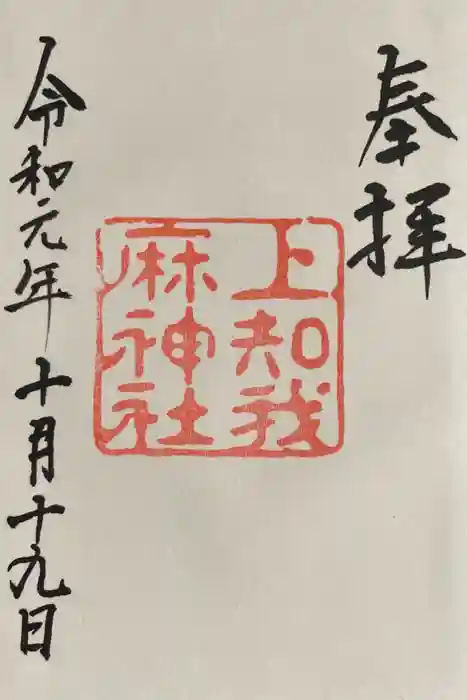 奉拝
上知我
麻神社
令和元年十月十九日